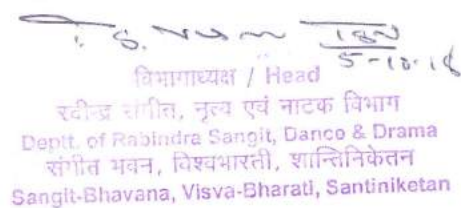 5-10-18
विभागाध्यक्ष / Head
रवीन्द्र संगीत, नृत्य एवं नाटक विभाग
Deptt. of Rabindra Sangit, Dance & Drama
संगीत भवन, विश्वभारती, शान्तिनिकेतन
Sangit-Bhavana, Visva-Bharati, Santiniketan